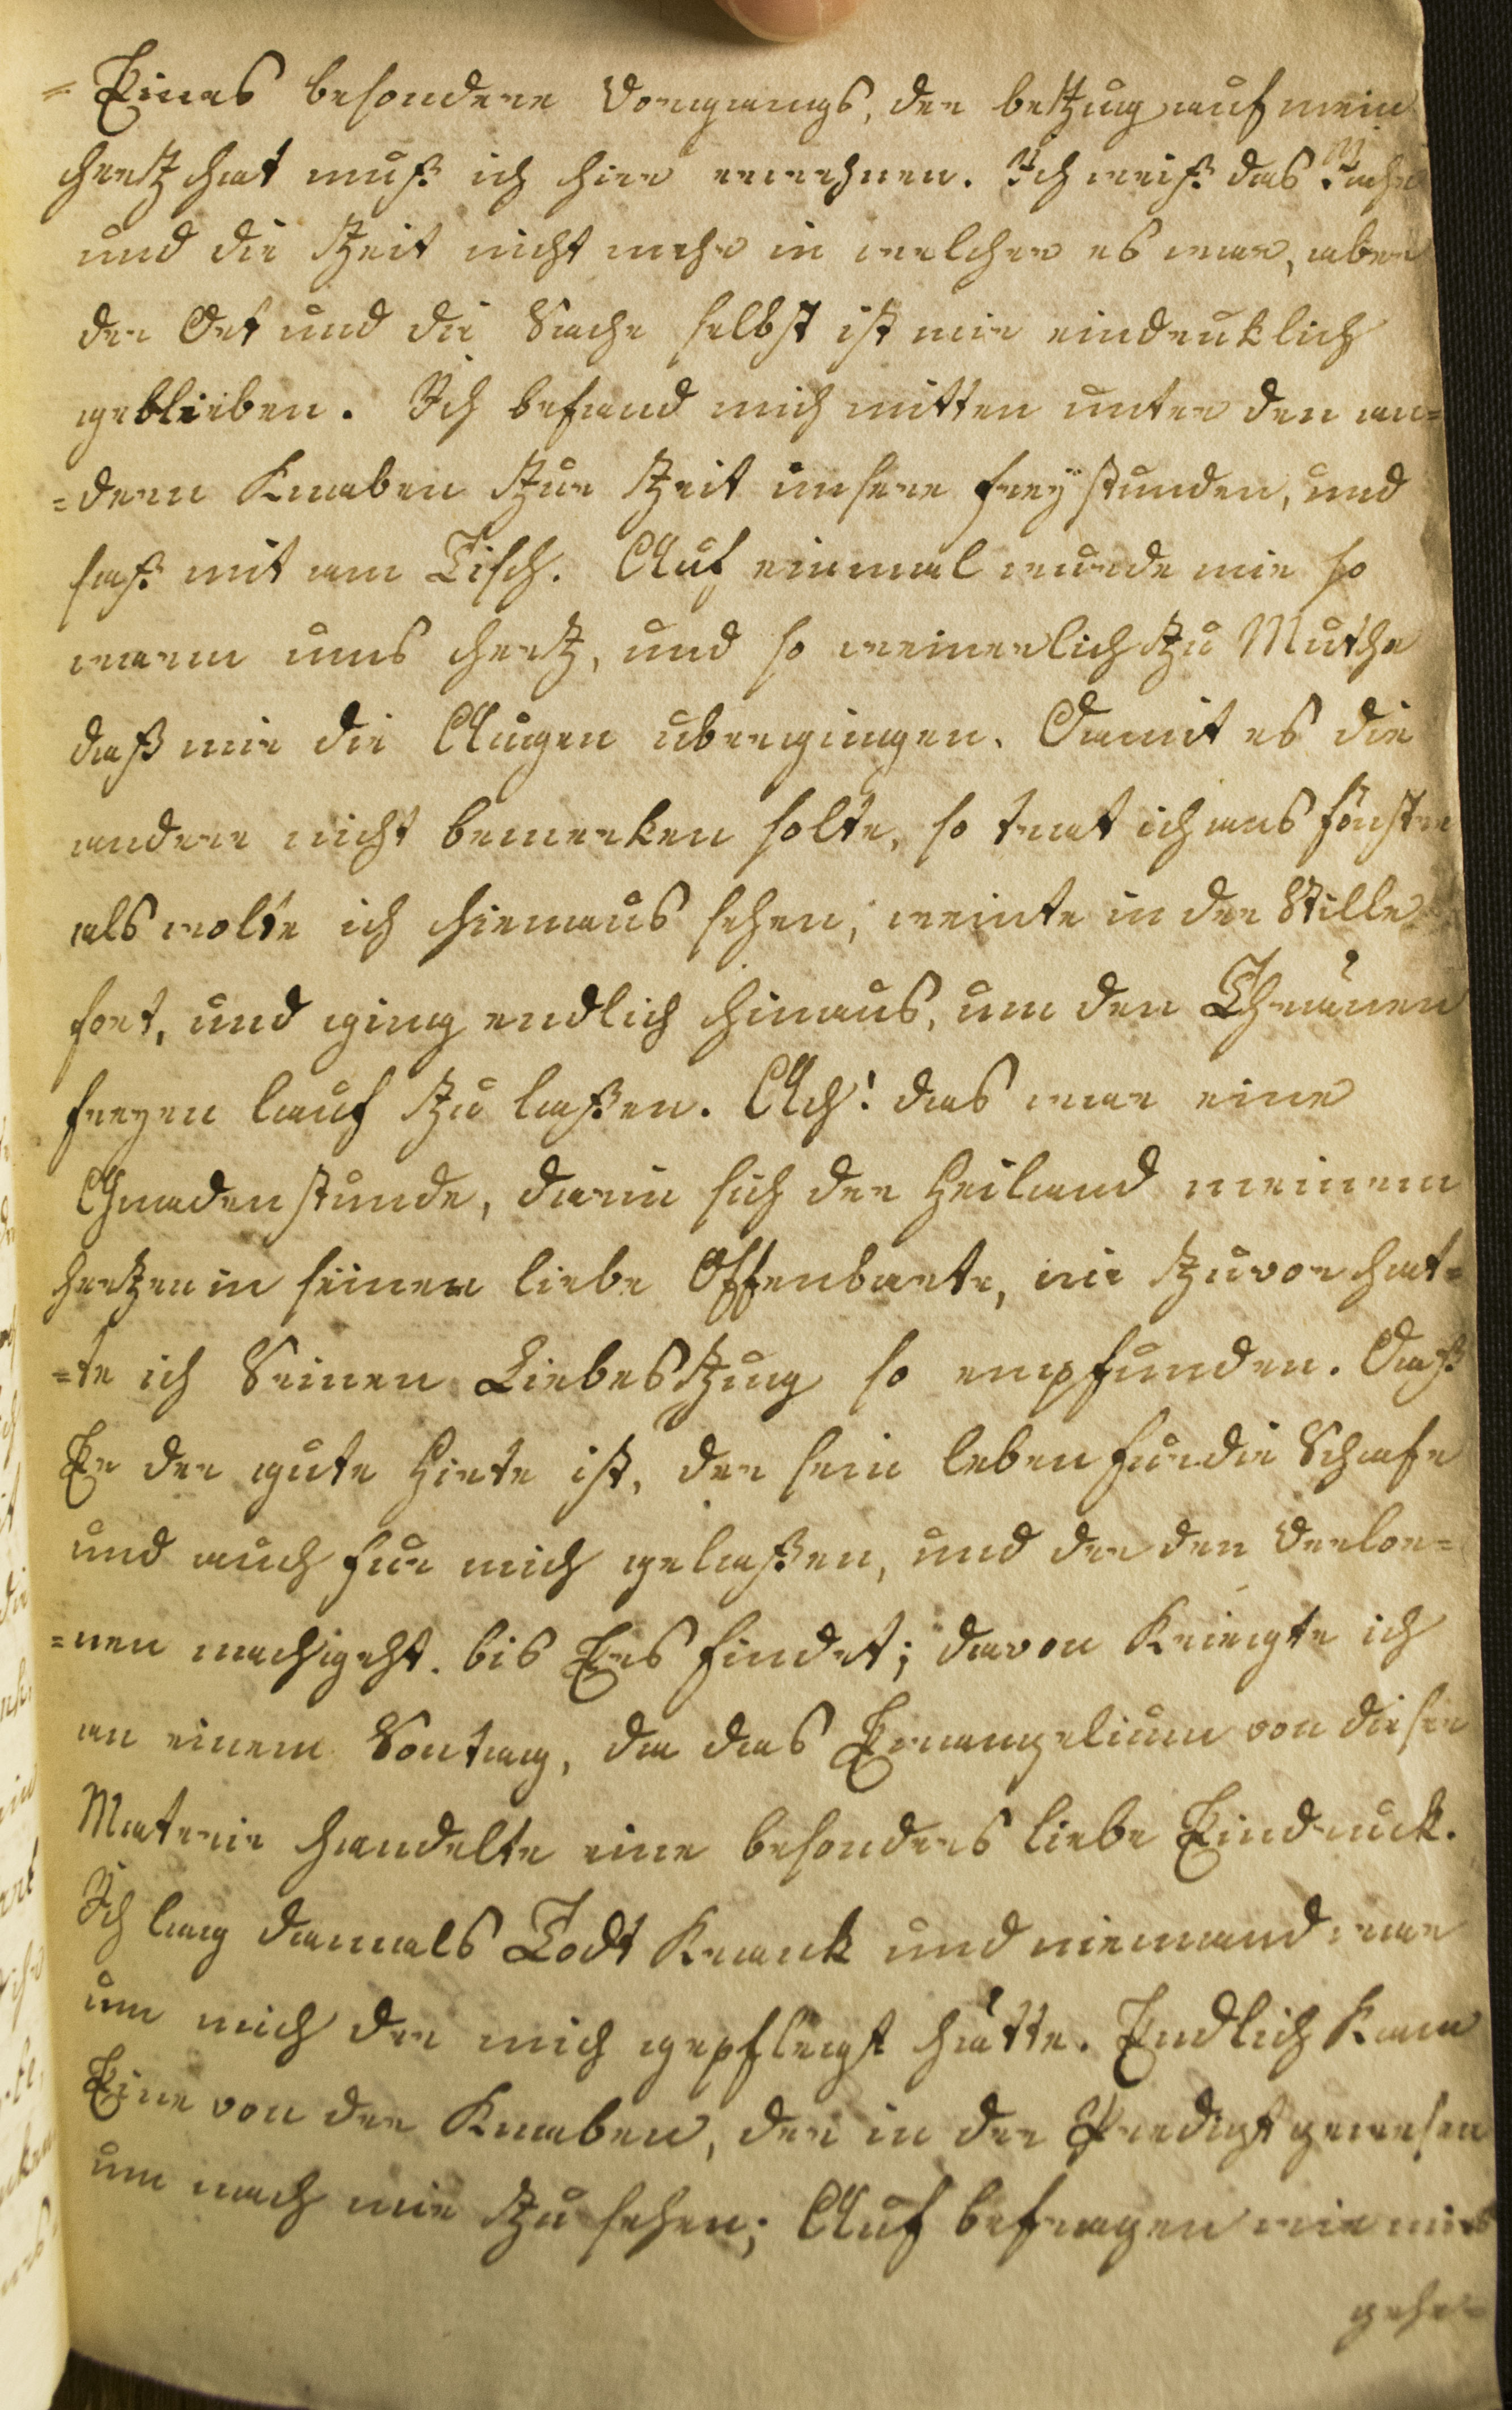 = Eines besondere Vorgangs, der betzug auf mein
Hertz hat muß ich hier erwehnen. Ich weiß das Jahr
und die Zeit nicht mehr in welcher es war, aber
der Ort und die Sache selbst ist mir eindruklich
geblieben. Ich befand mich mitten unter den an=
=dern Knaben zur Zeit unsere freystunden, und
saß mit am Tisch. Auf einmal wurde mir so
warm ums Hertz, und so weinerlich zu Muthe
daß mir die Augen ubergingen. Damit es die
andere nicht bemerken solte, so trat ich ans fenster
als wolte ich hinaus sehen, weinte in der Stille
fort, und ging endlich hinaus, um den Thränen
freyen lauf zu laßen. Ach! das war eine
Gnadenstunde, darin sich der Heiland meinem
Hertzen in seiner liebe Offenbarte, nie zuvor hat=
=te ich Seinen Liebeszug so empfunden. Daß
Er der gute Hirte ist, der sein leben fur die Schafe
und auch fur mich gelaßen, und der den Verlor=
=nen nachgeht. bis Ers findet; davon Kriegte ich
an einem Sontag, da das Evangelium von dieser
Materie handelte eine besonders liebe Eindruck.
Ich lag damals Todt Krank und niemand war
um mich der mich gepflegt hätte. Endlich Kam
Eine von der Knaben, der in der Predigt gewesen
um nach mir zu sehen; Auf befragen wie mirs
gehe=